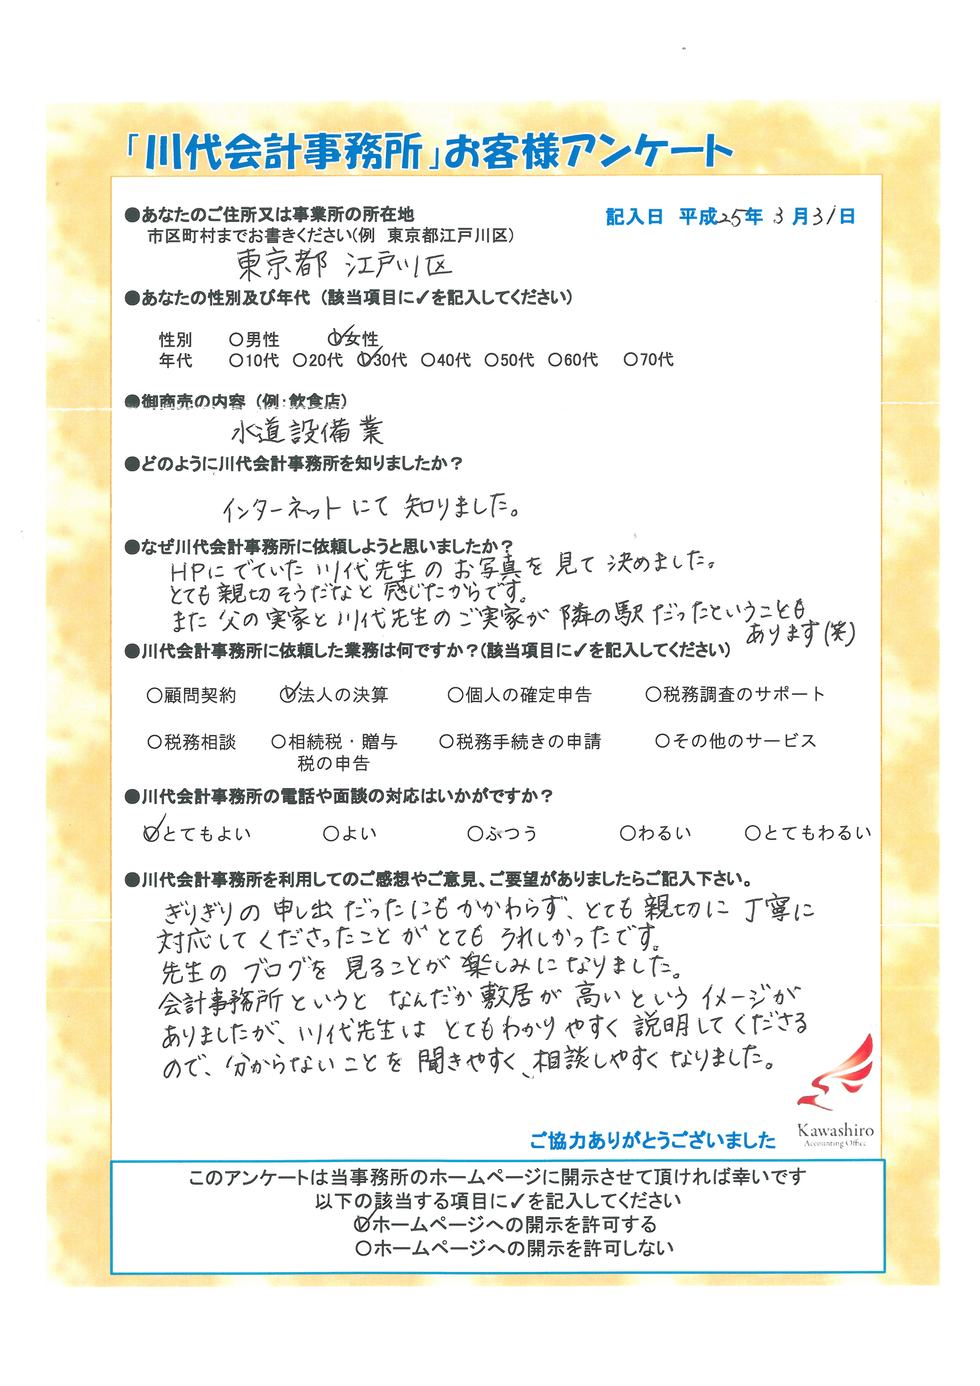 「川代会計事務所」お客様アンケート
●あなたのご住所又は事業所の所在地
記入日 平成25年 3月31日
市区町村までお書きください(例 東京都江戸川区)
東京都 江戸川区
●あなたの性別及び年代(該当項目に✓を記入してください)
性別 ○男性 ✓○女性
年代 ○10代 ○20代 ✓○30代 ○40代 ○50代 ○60代 ○70代
●御商売の内容(例:飲食店)
水道設備業
●どのように川代会計事務所を知りましたか?
インターネットにて 知りました。
●なぜ川代会計事務所に依頼しようと思いましたか?
HPにでていた 川代先生の お写真を 見て 決めました。
とても親切そうだなと 感じたからです。
また 父の実家と 川代先生のご実家が 隣の駅だったということも
あります(笑)
●川代会計事務所に依頼した業務は何ですか?(該当項目に✓を記入してください)
○顧問契約 ✓○法人の決算 ○個人の確定申告 ○税務調査のサポート
○税務相談 ○相続税・贈与 ○税務手続きの申請 ○その他のサービス
税の申告
●川代会計事務所の電話や面談の対応はいかがですか?
✓○とてもよい ○よい ○ふつう ○わるい ○とてもわるい
●川代会計事務所を利用してのご感想やご意見、ご要望がありましたらご記入下さい。
ぎりぎりの 申し出だったにもかかわらず、とても 親切に 丁寧に
対応してくださったことが とても うれしかったです。
先生の ブログを 見ることが 楽しみになりました。
会計事務所というと なんだか 敷居が 高いという イメージが
ありましたが、川代先生は とてもわかりやすく 説明してくださる
ので、分からないことを 聞きやすく、相談しやすくなりました。
Kawashiro
Accounting Office
ご協力ありがとうございました
このアンケートは当事務所のホームページに開示させて頂ければ幸いです
以下の該当する項目に✓を記入してください
✓○ホームページへの開示を許可する
○ホームページへの開示を許可しない